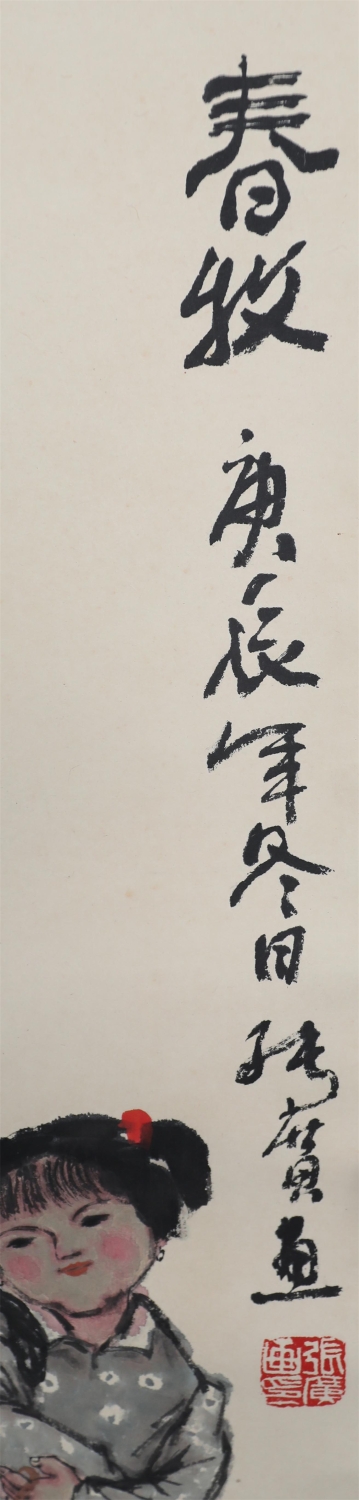 春牧 庚辰年冬日 张廣画
張廣畫印